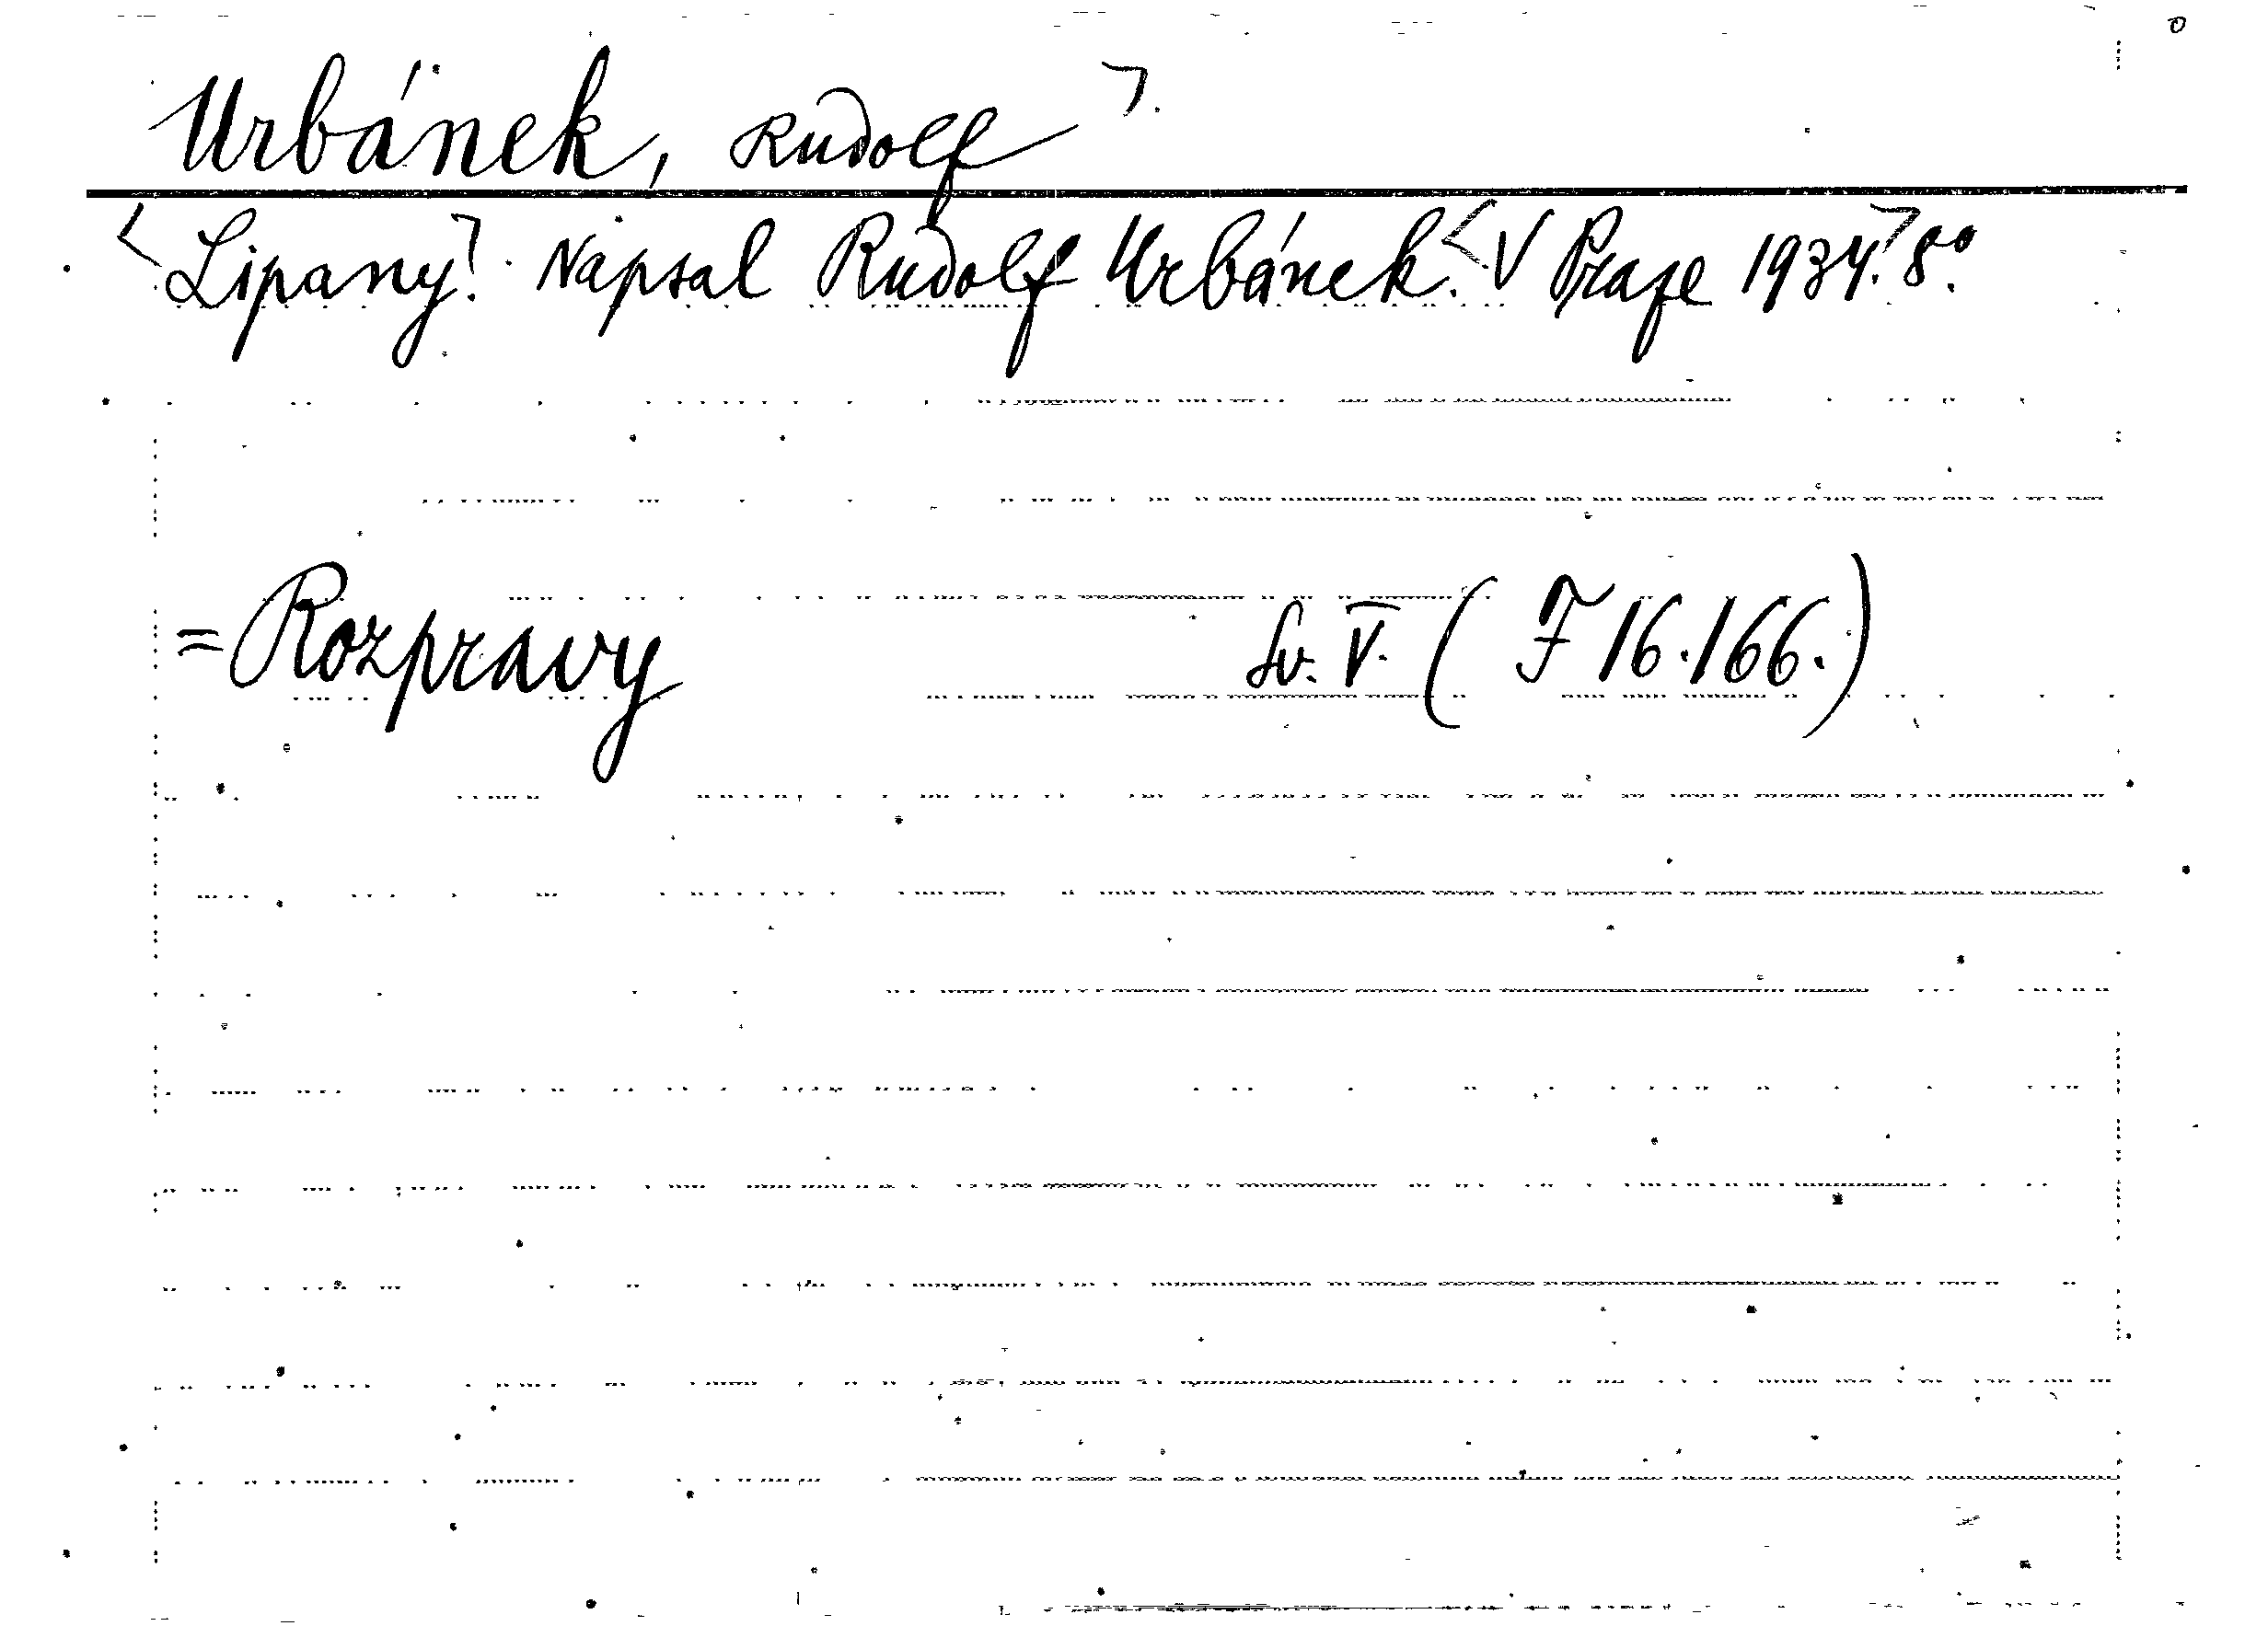 Urbánek, Rudolf ⌝.
<Lipany⌝. Napsal Rudolf Urbánek. <V Praze 1934.⌝ 8°.
= Rozpravy Sv. V. (F 16.166.)